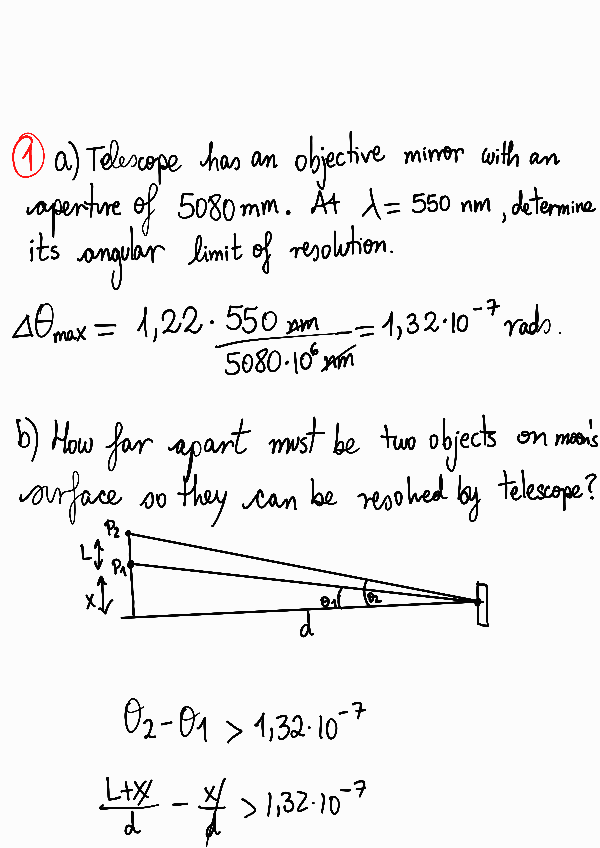 1 a) Telescope has an objective mirror with an
aperture of 5080 mm. At λ = 550 nm, determine
its angular limit of resolution.
Δθmax = 1,22 · 550 nm / 5080·10⁶ nm = 1,32·10⁻⁷ rads.
b) How far apart must be two objects on moon's
surface so they can be resolved by telescope?
P2
L P1
X θ1 θ2
d
θ2 - θ1 > 1,32·10⁻⁷
L+X / d - X / d > 1,32·10⁻⁷